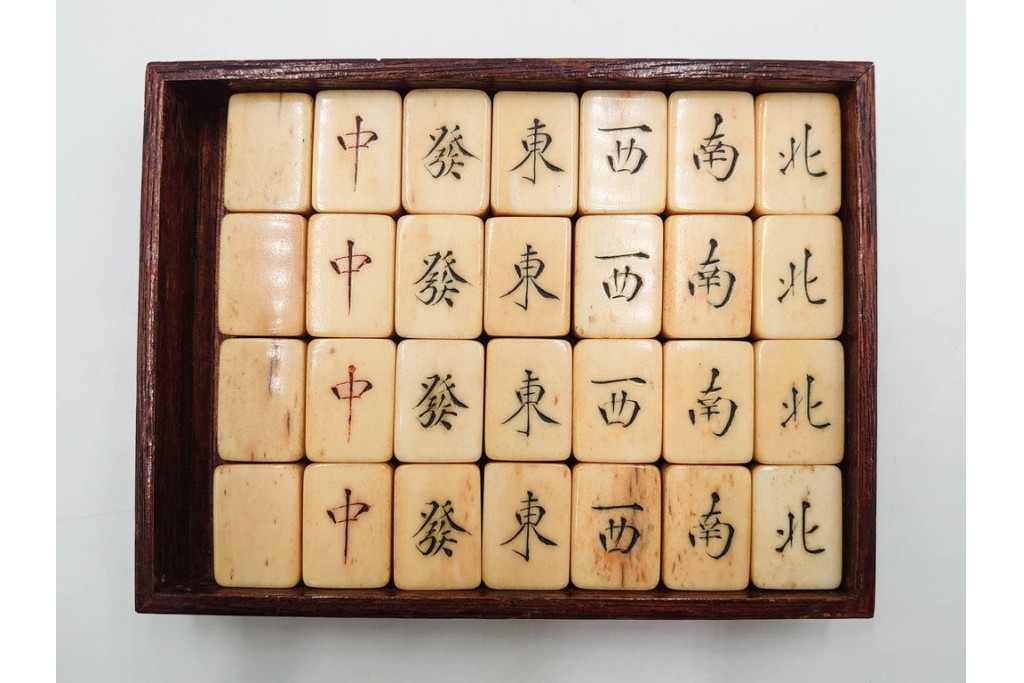 中 發 東 西 南 北
中 發 東 西 南 北
中 發 東 西 南 北
中 發 東 西 南 北